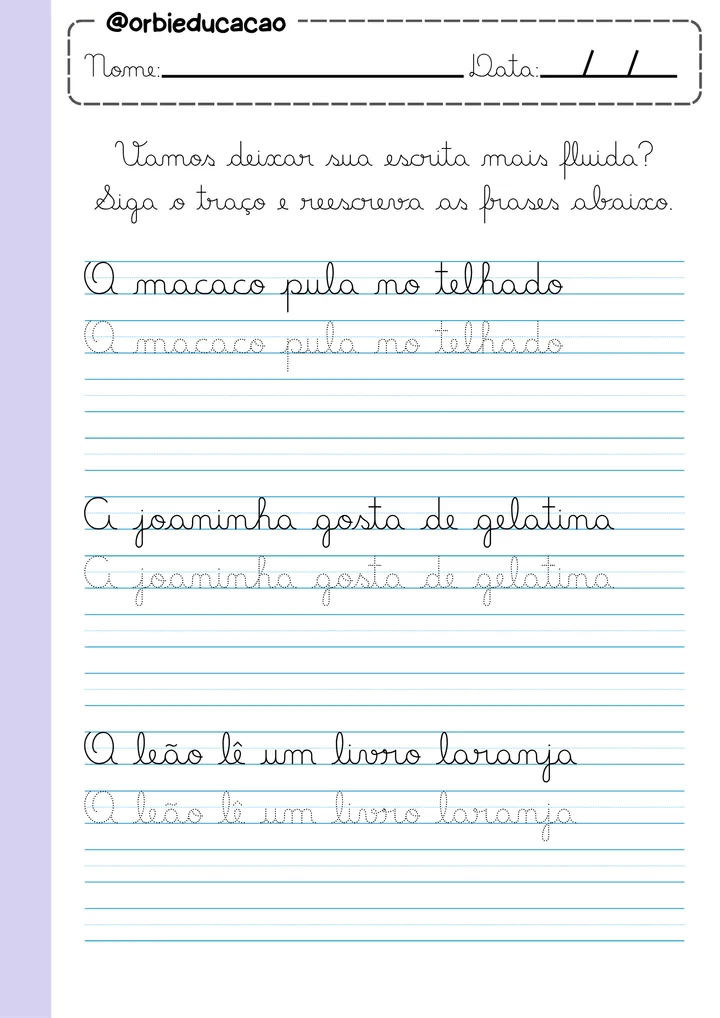 @orbieducacao
Nome: Data: / /
Vamos deixar sua escrita mais fluida?
Siga o traço e reescreva as frases abaixo.
O macaco pula no telhado
O macaco pula no telhado
A joaninha gosta de gelatina
A joaninha gosta de gelatina
O leão lê um livro laranja
O leão lê um livro laranja